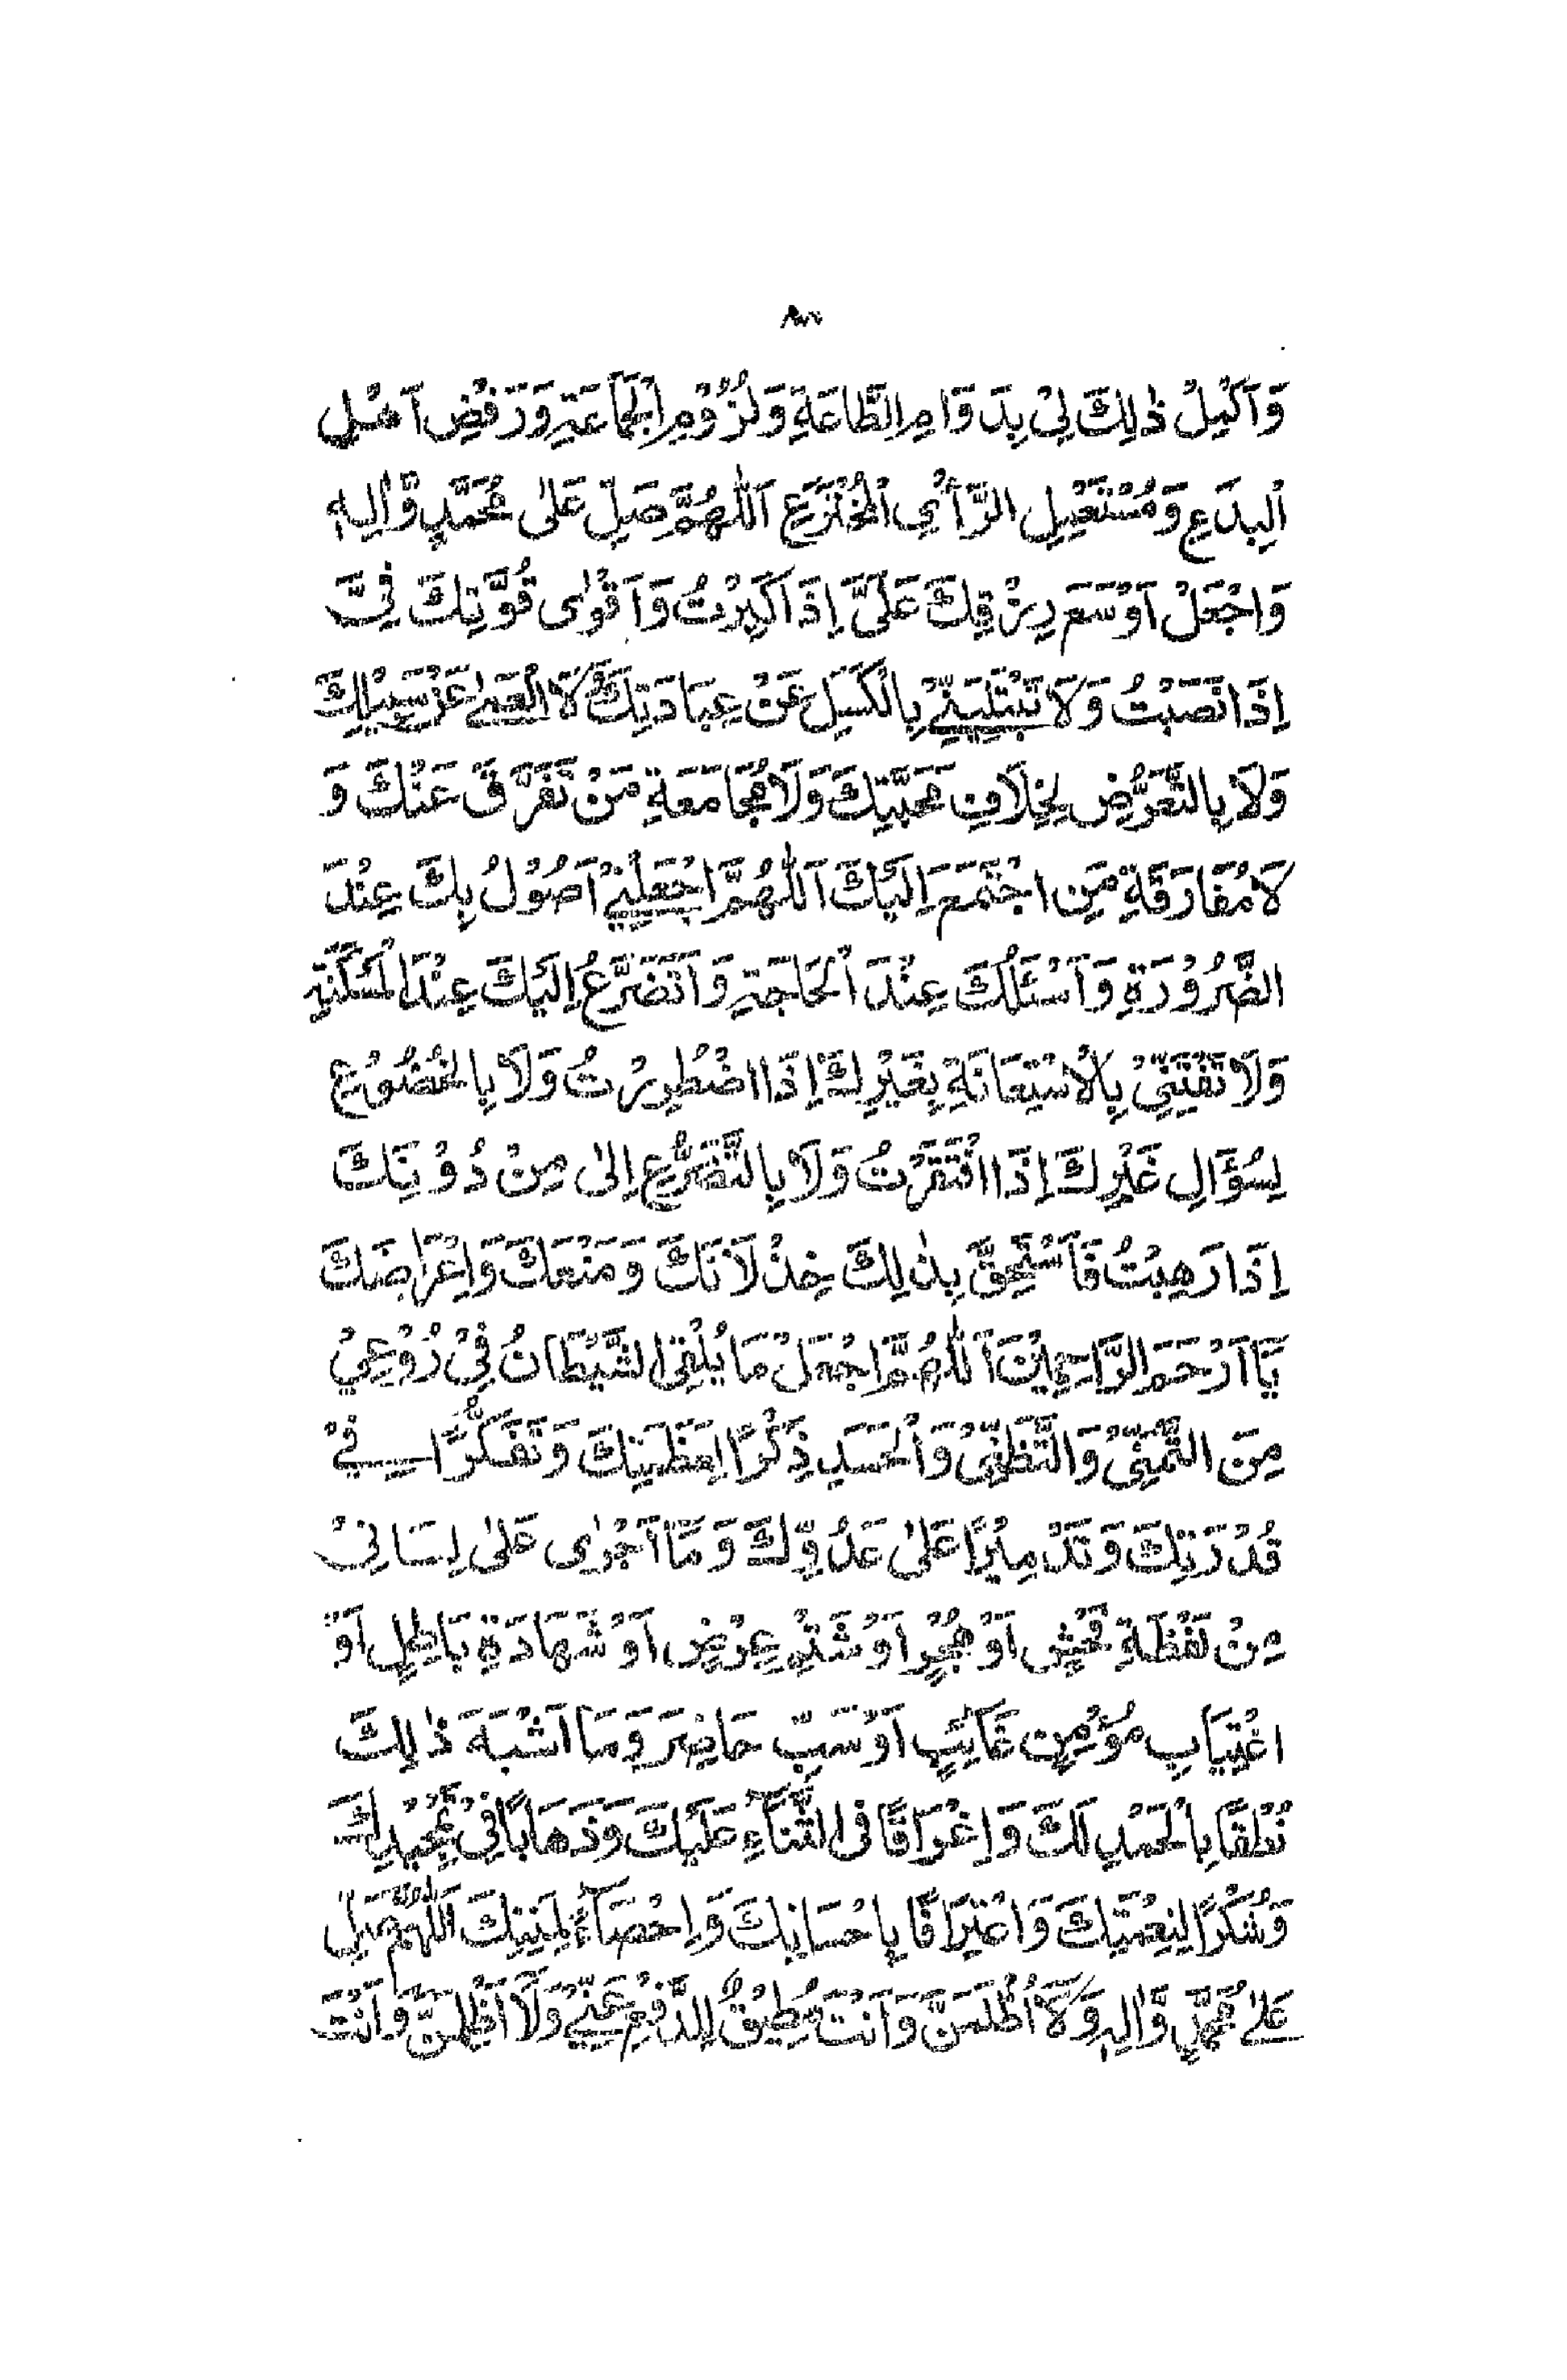 ۸۳
وَاَكْمِلْ ذٰلِكَ لِيْ بِدَوَامِ الطَّاعَةِ وَلُزُوْمِ الْجَمَاعَةِ وَرَفْضِ اَهْلِ
الْبِدَعِ وَمُسْتَعْمِلِ الرَّأْيِ الْمُخْتَرَعِ اَللّٰهُمَّ صَلِّ عَلٰى مُحَمَّدٍ وَّاٰلِهٖ
وَاجْعَلْ اَوْسَعَ رِزْقِكَ عَلَيَّ اِذَا كَبِرْتُ وَاَقْوٰى قُوَّتِكَ فِيَّ
اِذَا نَصَبْتُ وَلَا تَبْتَلِيَنِّيْ بِالْكَسَلِ عَنْ عِبَادَتِكَ لَا الْعَمٰى عَنْ سَبِيْلِكَ
وَلَا بِالتَّعَرُّضِ لِخِلَافِ مَحَبَّتِكَ وَلَا مُجَامَعَةِ مَنْ تَفَرَّقَ عَنْكَ وَ
لَا مُفَارَقَةِ مَنِ اجْتَمَعَ اِلَيْكَ اَللّٰهُمَّ اجْعَلْنِيْ اَصُوْلُ بِكَ عِنْدَ
الضَّرُوْرَةِ وَاَسْئَلُكَ عِنْدَ الْحَاجَةِ وَاَتَضَرَّعُ اِلَيْكَ عِنْدَ الْمَسْكَنَةِ
وَلَا تَفْتِنِّيْ بِالْاِسْتِعَانَةِ بِغَيْرِكَ اِذَا اضْطُرِرْتُ وَلَا بِالْخُضُوْعِ
لِسُؤَالِ غَيْرِكَ اِذَا افْتَقَرْتُ وَلَا بِالتَّضَرُّعِ اِلٰى مَنْ دُوْنَكَ
اِذَا رَهِبْتُ فَاَسْتَحِقَّ بِذٰلِكَ خِذْلَانَكَ وَمَنْعَكَ وَاِعْرَاضَكَ
يَا اَرْحَمَ الرَّاحِمِيْنَ اَللّٰهُمَّ اجْعَلْ مَا يُلْقِى الشَّيْطَانُ فِيْ رُوْعِيْ
مِنَ التَّمَنِّيْ وَالتَّظَنِّيْ وَالْحَسَدِ ذِكْرًا لِعَظَمَتِكَ وَتَفَكُّرًا فِيْ
قُدْرَتِكَ وَتَدْمِيْرًا عَلٰى عَدُوِّكَ وَمَا اَجْرٰى عَلٰى لِسَانِيْ
مِنْ لَفْظَةِ فُحْشٍ اَوْ هُجْرٍ اَوْ شَتْمِ عِرْضٍ اَوْ شَهَادَةِ بَاطِلٍ اَوِ
اغْتِيَابِ مُؤْمِنٍ غَائِبٍ اَوْ سَبِّ حَاضِرٍ وَمَا اَشْبَهَ ذٰلِكَ
نُطْقًا بِالْحَمْدِ لَكَ وَاِغْرَاقًا فِى الثَّنَاءِ عَلَيْكَ وَذَهَابًا فِيْ تَمْجِيْدِكَ
وَشُكْرًا لِنِعْمَتِكَ وَاعْتِرَافًا بِاِحْسَانِكَ وَاِحْصَاءً لِمِنَنِكَ اَللّٰهُمَّ صَلِّ
عَلٰى مُحَمَّدٍ وَّاٰلِهٖ وَلَا اُظْلَمَنَّ وَاَنْتَ مُطِيْقٌ لِلدَّفْعِ عَنِّيْ وَلَا اَظْلِمَنَّ وَاَنْتَ